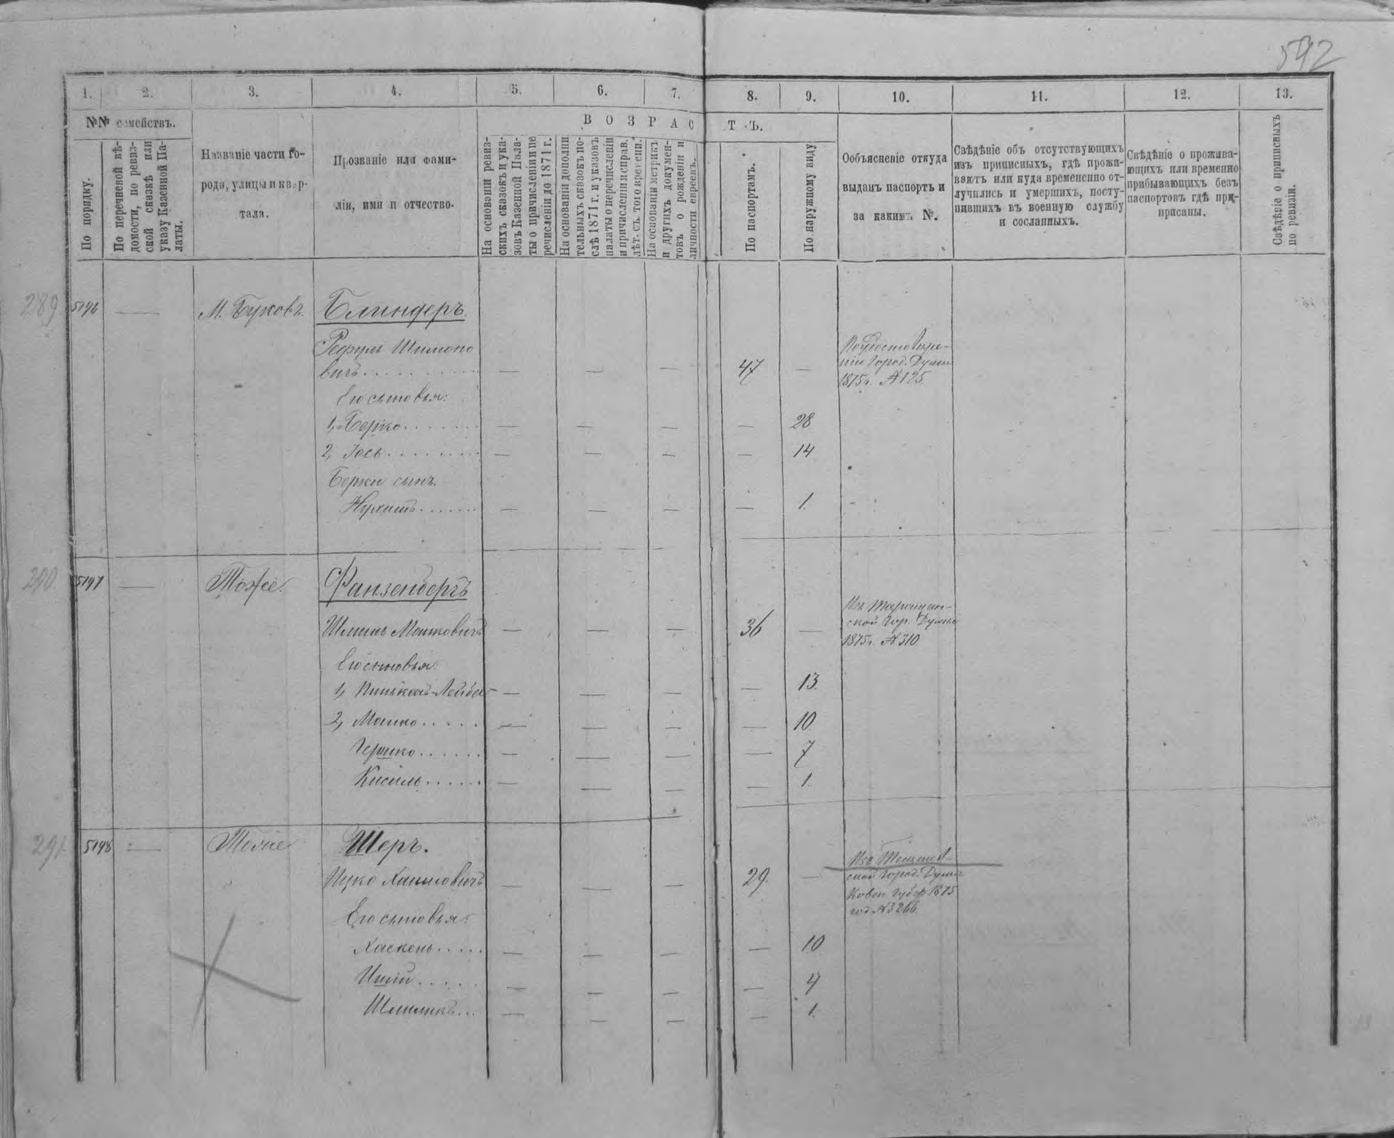 592
1. 2. 3. 4. 5. 6. 7. 8. 9. 10. 11. 12. 13.
№№ семействъ.
ВОЗРАСТЪ.
По порядку.
По перечневой вѣ-
домости, по ревиз-
ской сказкѣ или
указу Казенной Па-
латы.
Названіе части го-
рода, улицы и квар-
тала.
Прозваніе или фами-
лія, имя и отчество.
На основаніи ревиз-
скихъ сказокъ и ука-
зовъ Казенной Пала-
ты о причисленіи пе
речисленіи до 1871 г.
На основаніи дополни
тельныхъ сказокъ по-
слѣ 1871 г. и указовъ
палаты о перечисленіи
и причисленіи и справ.
лѣт. съ того времени.
На основаніи метрикъ
и другихъ докумен-
товъ о рожденіи и
личности евреевъ.
По паспортамъ.
По наружному виду
Объясненіе откуда
выданъ паспортъ и
за какимъ №.
Свѣдѣніе объ отсутствующихъ
изъ приписныхъ, гдѣ прожи-
ваютъ или куда временно от-
лучились и умершихъ, посту-
пившихъ въ военную службу
и сосланныхъ.
Свѣдѣніе о прожива-
ющихъ или временно
прибывающихъ безъ
паспортовъ гдѣ при-
приписаны.
Свѣдѣніе о приписныхъ
по ревизіи.
289 5146 — М. Буковъ Блиндеръ
Шимоно
вичъ — — — 47 —
Город. Думы
1875г. №125
Его сыновья:
1, Берко — — — — 28
2, Іось — — — — 14
Берки сынъ
Нухимъ — — — — 1
290 5147 — Тоже Фанзенбергъ
Шмиль Мошковичъ — — — 36 —
Изъ Таращан-
ской Гор. Думы
1875г. №310
Его сыновья:
1, Лейба — — — — 13
2, Мошко — — — — 10
Гершко — — — — 7
Кисиль — — — — 1
291 5148 — Тоже Шеръ.
Ицко Хаимовичъ — — — 29 —
Изъ
ской Город. Думы
Ковен. Губер. 1875
год. №3266
Его сыновья:
Хаскель — — — — 10
Ицій — — — — 4
Шмиликъ — — — — 1